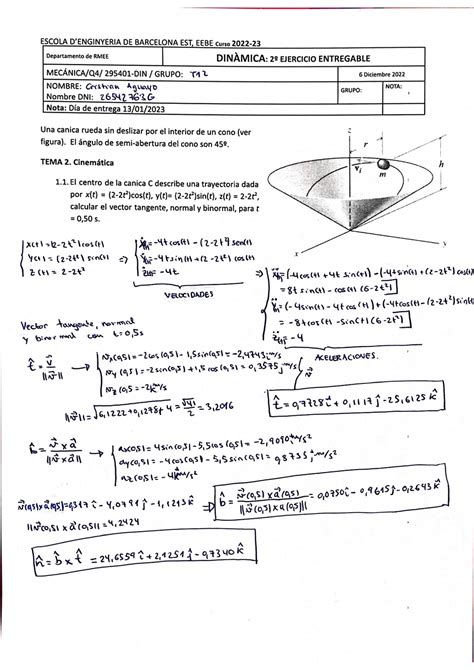 ESCOLA D'ENGINYERIA DE BARCELONA EST, EEBE Curso 2022-23
Departamento de RMEE
DINÀMICA: 2º EJERCICIO ENTREGABLE
MECÁNICA/Q4/ 295401-DIN / GRUPO: T12
6 Diciembre 2022
NOMBRE: Cristian Aguayo
GRUPO:
NOTA:
Nombre DNI: 26842763G
Nota: Día de entrega 13/01/2023
Una canica rueda sin deslizar por el interior de un cono (ver
figura). El ángulo de semi-abertura del cono son 45º.
z
r
h
v_i
m
x
y
TEMA 2. Cinemática
1.1. El centro de la canica C describe una trayectoria dada
por x(t) = (2-2t²)cos(t), y(t)= (2-2t²)sin(t), z(t) = 2-2t²,
calcular el vector tangente, normal y binormal, para t
= 0,50 s.
x(t) = (2-2t²) cos(t)
y(t) = (2-2t²) sin(t)
z(t) = 2-2t²
⇒ ẋ(t) = -4t cos(t) - (2-2t²) sen(t)
ẏ(t) = -4t sin(t) + (2-2t²) cos(t)
ż(t) = -4t
VELOCIDADES
= 8t sin(t) - cos(t) (6-2t²)
= -8t cos(t) - sin(t) (6-2t²)
z̈(t) = -4
ACELERACIONES.
Vector tangente, normal
y binormal con t=0,5s
t̂ = v̄ / ||v̄||
Vx(0,5) = -2cos(0,5) - 1,5sin(0,5) = -2,4743 m/s
Vy(0,5) = -2sin(0,5) + 1,5 cos(0,5) = 0,3575 m/s
Vz(0,5) = -2 m/s
||v̄|| = √6,1222+0,1278+4 = √41/2 = 3,2016
t̂ = 0,7728 î + 0,1117 ĵ - 25,6125 k̂
b̂ = v̄ x ā / ||v̄ x ā||
ax(0,5) = 4sin(0,5) - 5,5cos(0,5) = -2,9090 m/s²
ay(0,5) = -4cos(0,5) - 5,5sin(0,5) = 9,8735 m/s²
az(0,5) = -4 m/s²
v̄(0,5) x ā(0,5) = 0,317 î - 4,0791 ĵ - 1,1213 k̂
||v̄(0,5) x ā(0,5)|| = 4,2424
b̂ = v̄(0,5) x ā(0,5) / ||v̄(0,5) x a(0,5)|| = 0,0750 î - 0,9615 ĵ - 0,2643 k̂
n̂ = b̂ x t̂ = 24,6559 î + 2,1251 ĵ - 0,7340 k̂